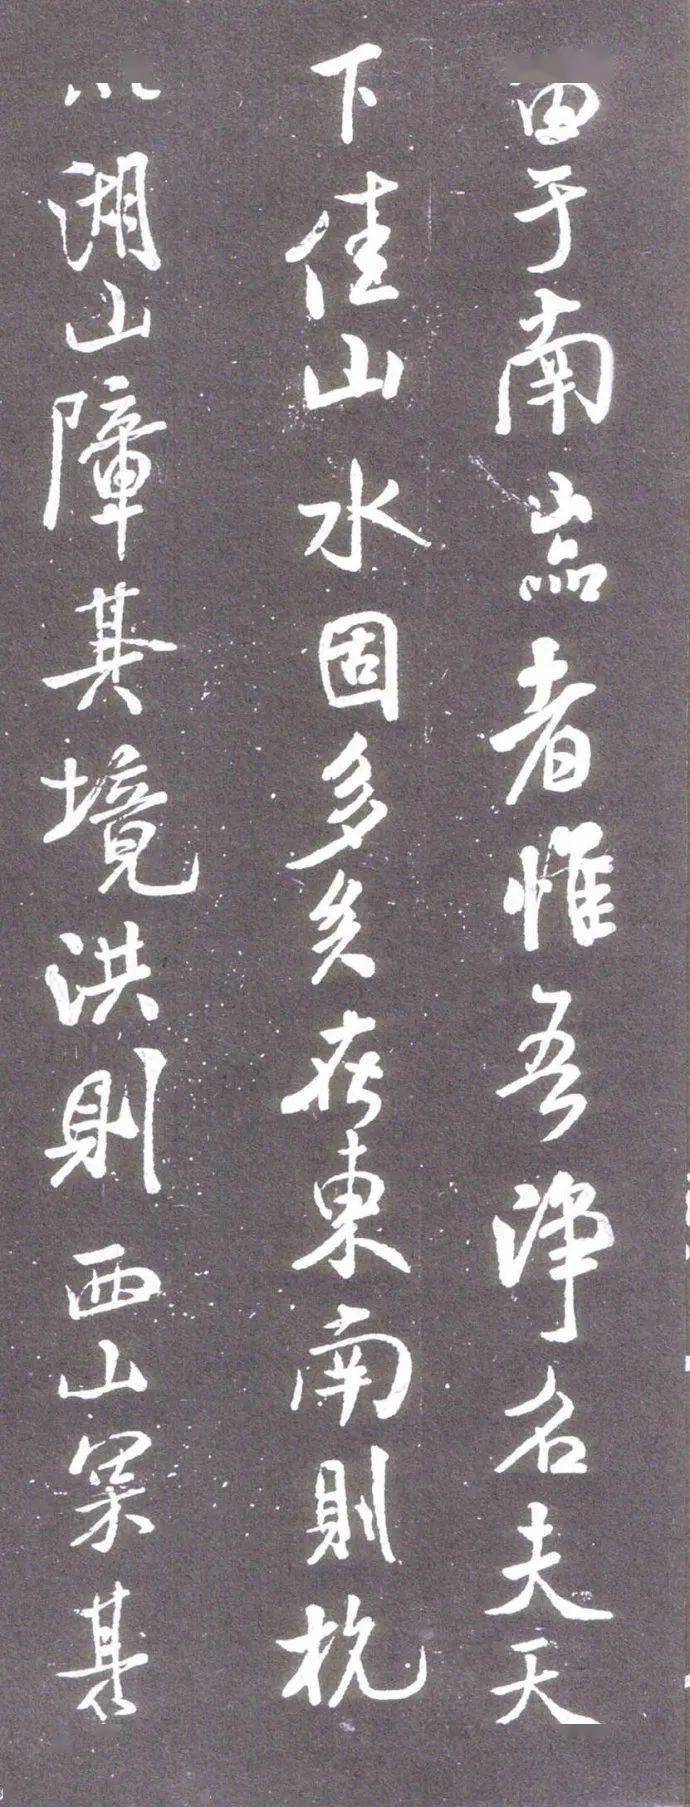 于南嵒者惟吾淨名夫天
下佳山水固多矣在東南則杭
湖山障其境洪則西山其